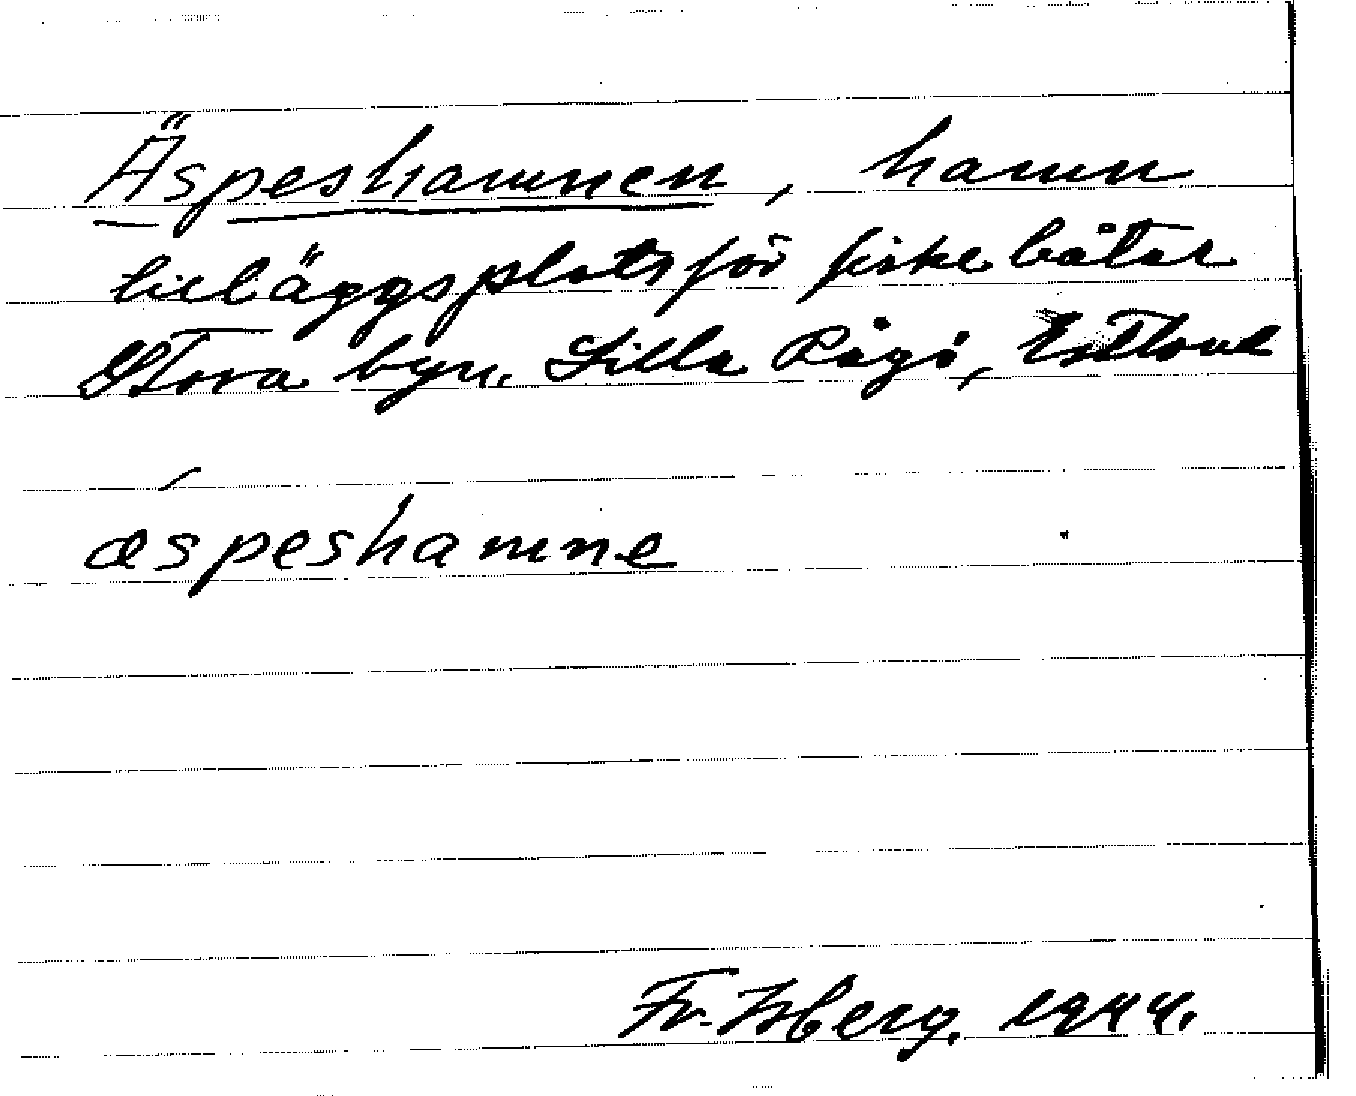 Äspeshamnen, hamn
tilläggsplats för fiskebåtar
Stora byn. Lilla Rågö, Estland
æspeshamne
Fr. Isberg. 1944.